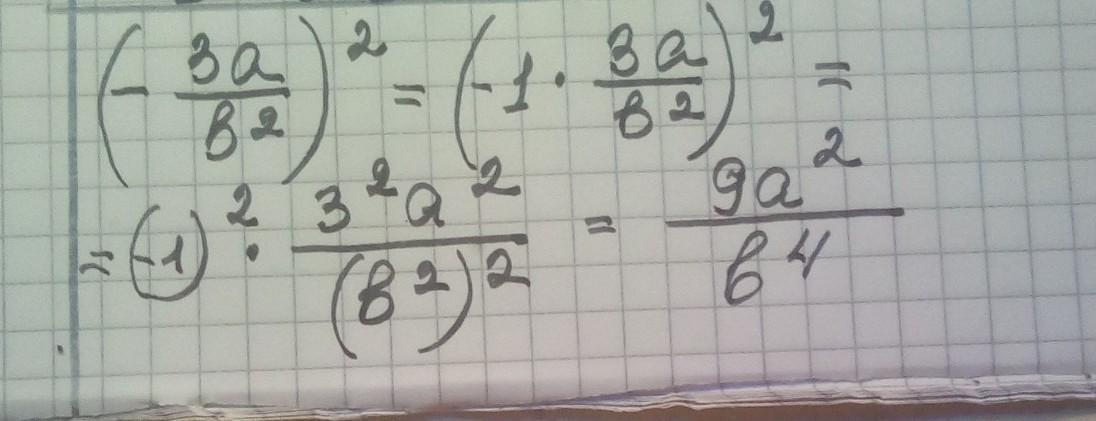 (- 3a/b²)² = (-1 · 3a/b²)² =
= (-1)² · 3²a²/(b²)² = 9a²/b⁴